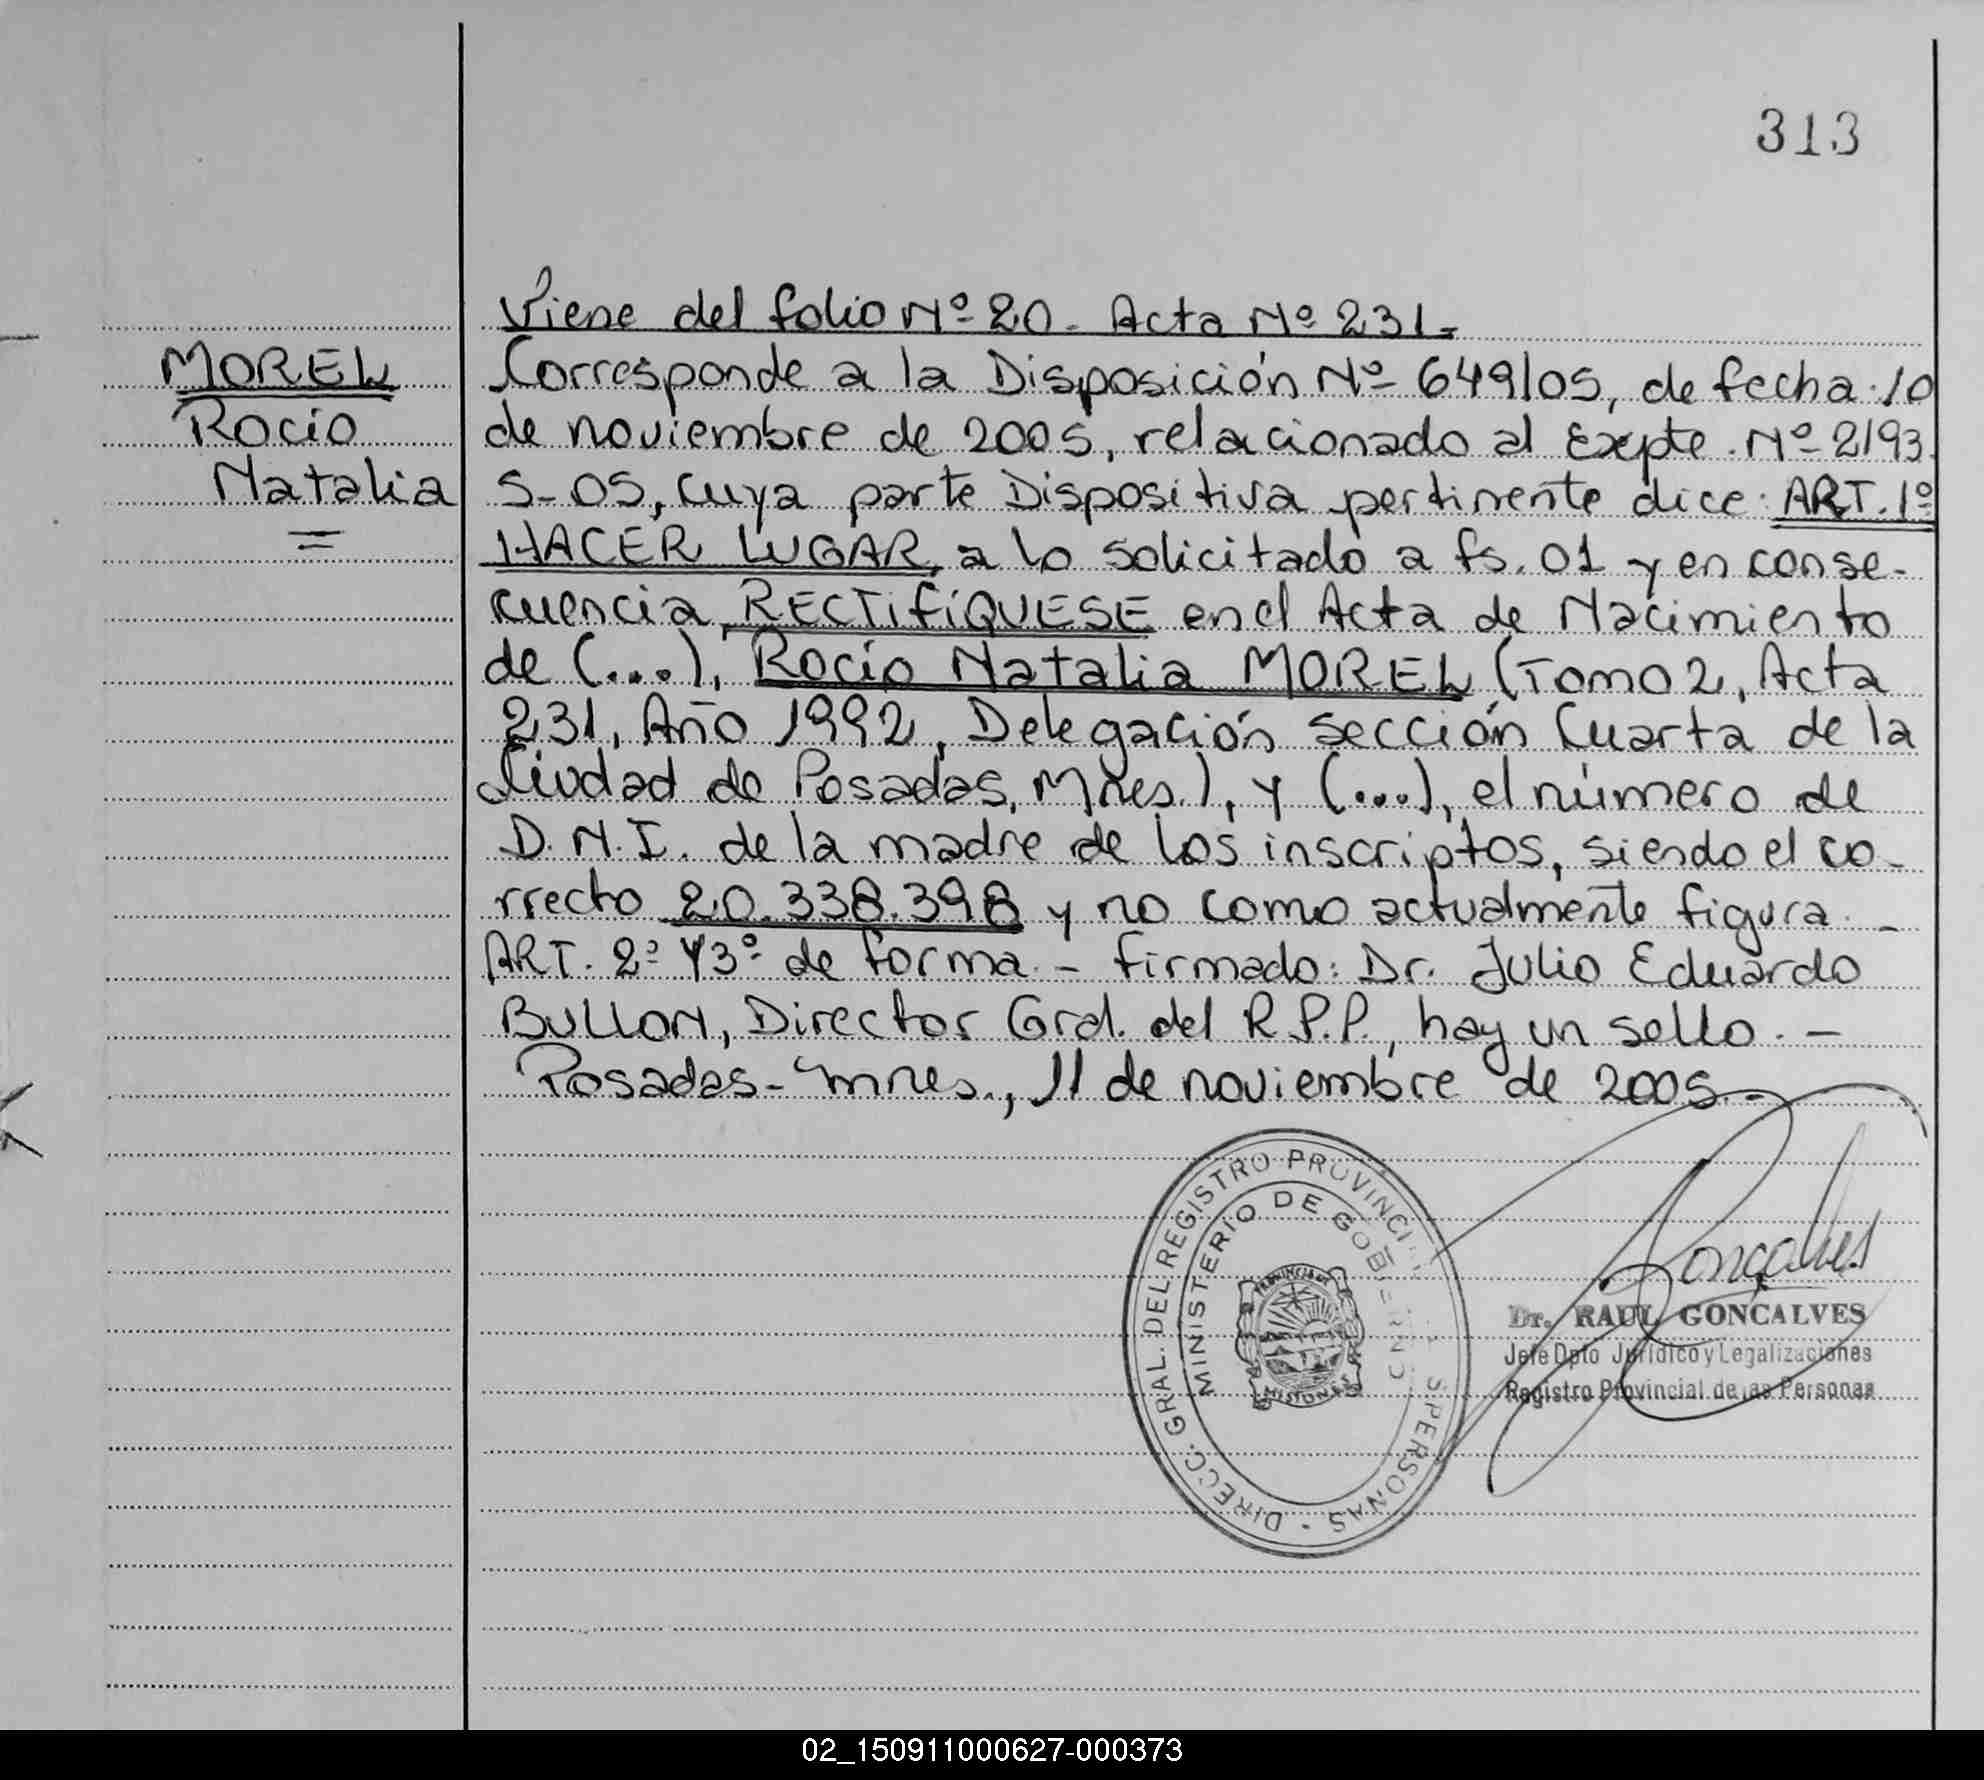 313
Viene del folio Nº 20. Acta Nº 231.
MOREL
Rocío
Natalia
Corresponde a la Disposición Nº 649/05, de fecha 10
de noviembre de 2005, relacionado al Expte. Nº 2193.
S-05, cuya parte Dispositiva pertinente dice: ART. 1º
HACER LUGAR, a lo solicitado a fs. 01 y en conse-
cuencia, RECTIFÍQUESE en el Acta de Nacimiento
de (...), Rocío Natalia MOREL (Tomo 2, Acta
231, Año 1992, Delegación Sección Cuarta de la
Ciudad de Posadas, Mnes.), y (...), el número de
D.N.I. de la madre de los inscriptos, siendo el co-
rrecto 20.338.398 y no como actualmente figura. -
ART. 2º Y 3º de forma. - Firmado: Dr. Julio Eduardo
BULLON, Director Gral. del R.P.P., hay un sello. -
Posadas - Mnes., 11 de noviembre de 2005. -
DIRECC. GRAL. DEL REGISTRO PROVINCIAL PERSONAS
MINISTERIO DE GOBIERNO
PROVINCIA DE
MISIONES
Goncalves
Dr. RAUL GONCALVES
Jefe Dpto Jurídico y Legalizaciones
Registro Provincial de las Personas
02_150911000627-000373